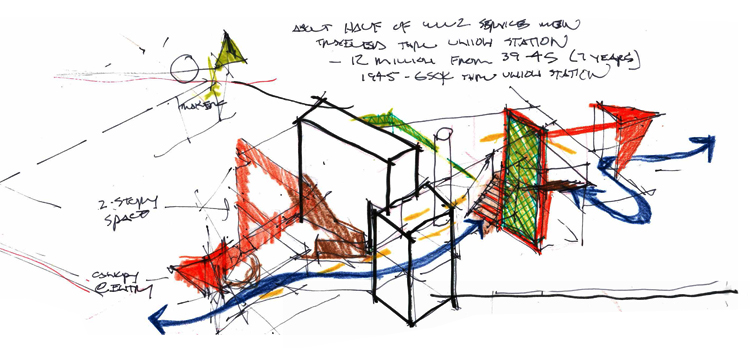 ABOUT HALF OF WW2 SERVICE MEN
TRAVELED THRU UNION STATION
- 12 MILLION FROM 39-45 (7 YEARS)
1945 - 65OK THRU UNION STATION
2-STORY
SPACE
CANOPY
@ ENTRY